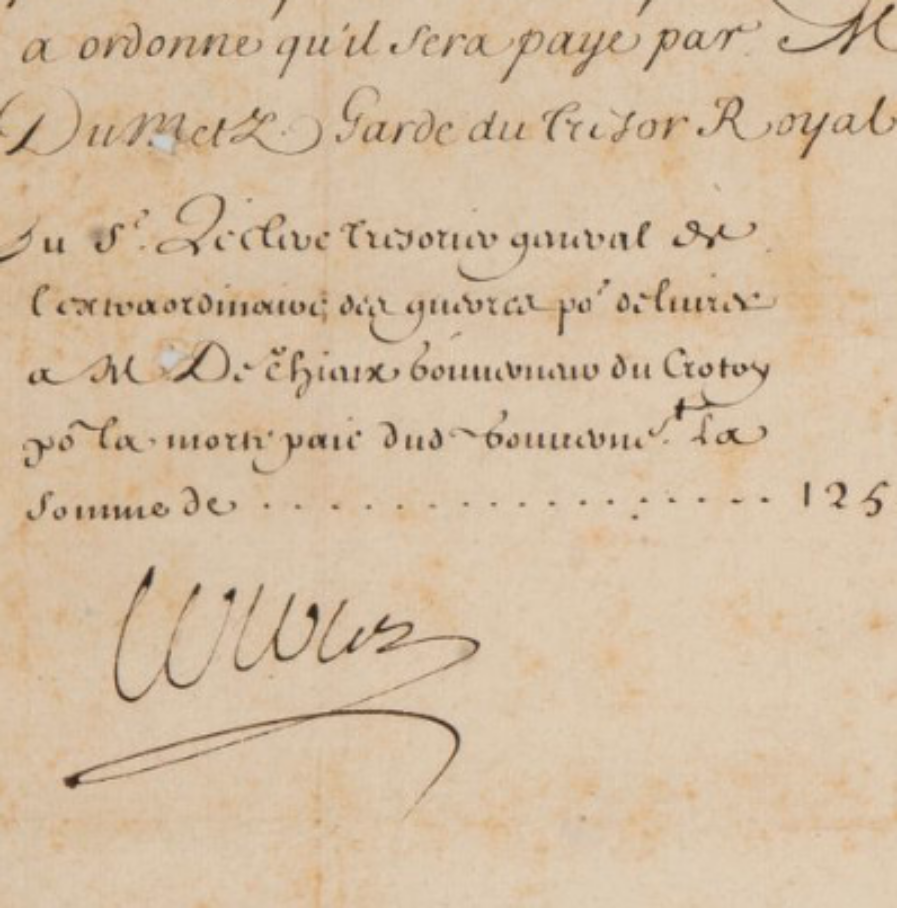 a ordonne qu'il sera paye par M
DuMetz Garde du Tresor Royal
Au Sr. Leclerc Tresorier general de
l'extraordinaire des guerres por delivrer
a M De Chiaux Gouverneur du Crotoy
por la morte paie dud Gouvernet. La
somme de .................. 125